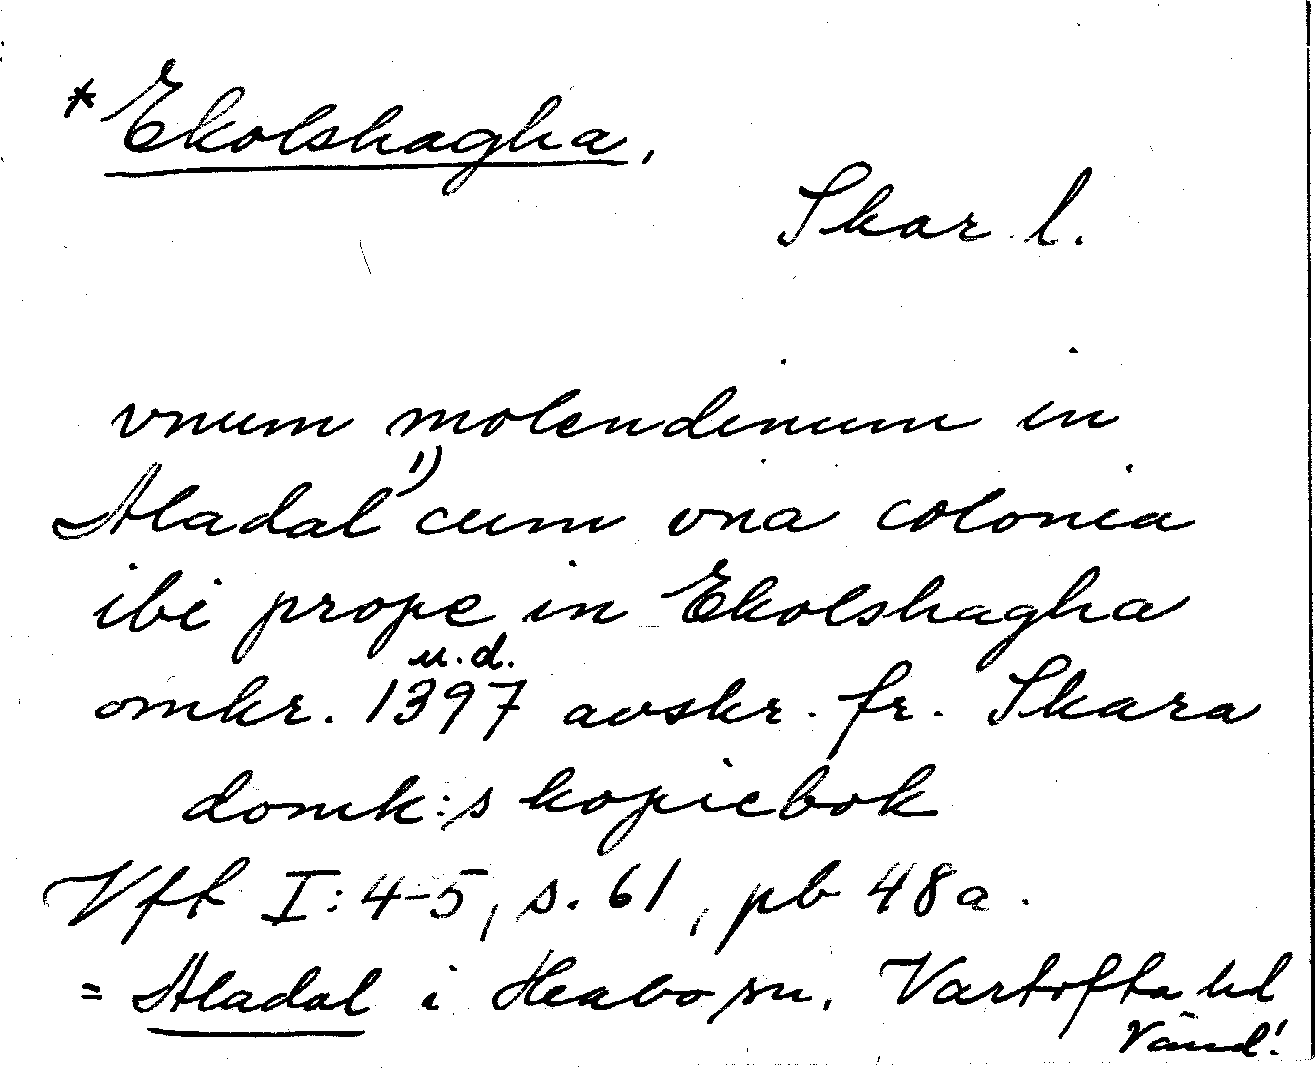 *Ekolshagha,
Skar l.
vnum molendinum in
Aladal 1) cum vna colonia
ibi prope in Ekolshagha
u.d.
omkr. 1397 avskr. fr. Skara
domk:s kopiebok
Vft I:4-5, s. 61, pb 48a.
= Aladal i Habo sn, Vartofta hd
Vänd!